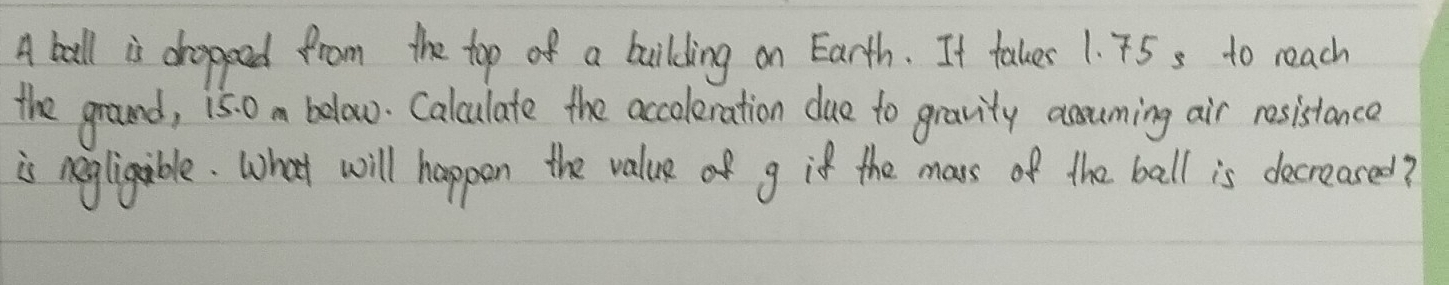 A ball is dropped from the top of a building on Earth. It takes 1.75 s to reach
the ground, 15.0 m below. Calculate the acceleration due to gravity assuming air resistance
is negligible. What will happen the value of g if the mass of the ball is decreased?